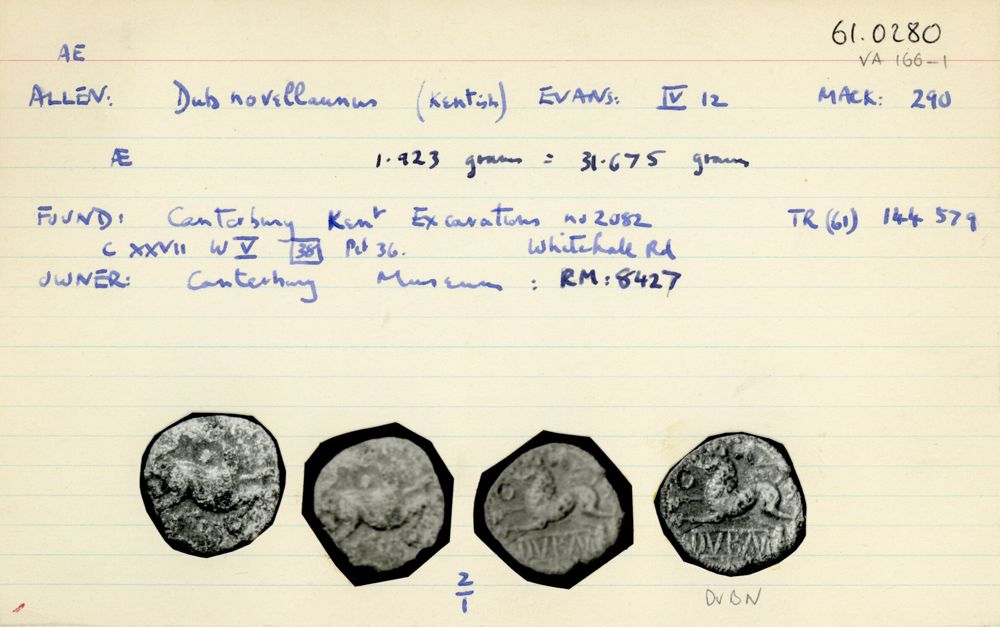 61.0280
AE VA 166-1
ALLEN: Dubnovellaunus (Kentish) EVANS: IV 12 MACK: 290
Æ 1.923 grams = 31.675 grams
FOUND: Canterbury Kent Excavations no 2082 TR (61) 144 579
C XXVII W V 38 Pit 36. Whitehall Rd
OWNER: Canterbury Museum : RM: 8427
2
1
DVBN